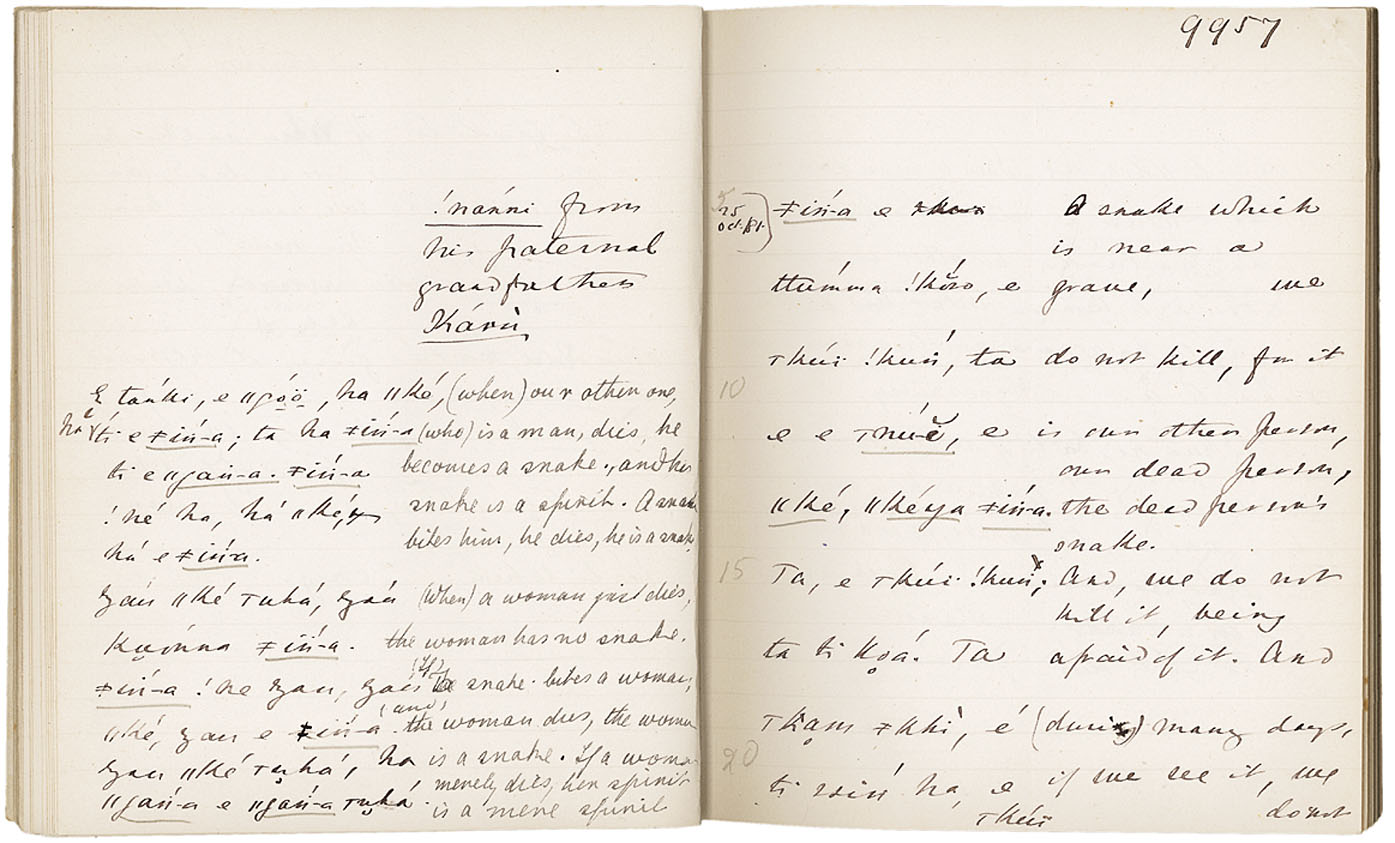 !nanni from
his paternal
grandfather
Káru̱
E taṅki, e ǁgóö, ha ǁké, (when) our other one,
ti e ǂiṅ-a; ta ha ǂiṅ-a (who) is a man, dies, he
ti e ǁgaṅ-a. ǂiṅ-a becomes a snake., and his
!né ha, há ǁké, snake is a spirit. A snake
há e ǂiṅ-a. bites him, he dies, he is a snake
ǁké (When) a woman just dies,
ǂiṅ-a. the woman has no snake.
ǂiṅ-a !ne (If) snake bites a woman,
ǁké, e ǂiṅ-a (and) the woman dies, the woman
ǁké ha is a snake. If a woman
merely dies, her spirit
ǁgaṅ-a e ǁgaṅ-a is a mere spirit
9957
25 Oct. /81. ǂiṅ-a e A snake which
is near a
ttúmma !kŏro, e grave, we
10
!kuṅ, ta do not kill, for it
e e e is our other person,
our dead person,
ǁké, ǁkéya ǂiṅ-a. the dead person's
snake.
15 Ta, e !kuṅ; And, we do not
kill it, being
ta ti kǫá. Ta afraid of it. And
ǂkhì, é (during) many days,
20
ti ha, e if we see it, we
do not